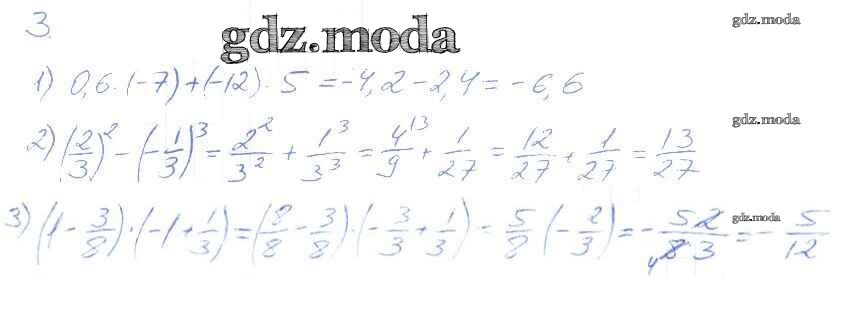 3.
gdz.moda
gdz.moda
1) 0,6 · (-7) + (-12) · 5 = -4,2 - 2,4 = -6,6
gdz.moda
2) (2/3)^2 - (-1/3)^3 = 2^2/3^2 + 1^3/3^3 = 4^(3/9 + 1/27 = 12/27 + 1/27 = 13/27
3) (1 - 3/8) · (-1 + 1/3) = (8/8 - 3/8) · (-3/3 + 1/3) = 5/8 (-2/3) = - 5 2/4 8 · 3 = - 5/12
gdz.moda